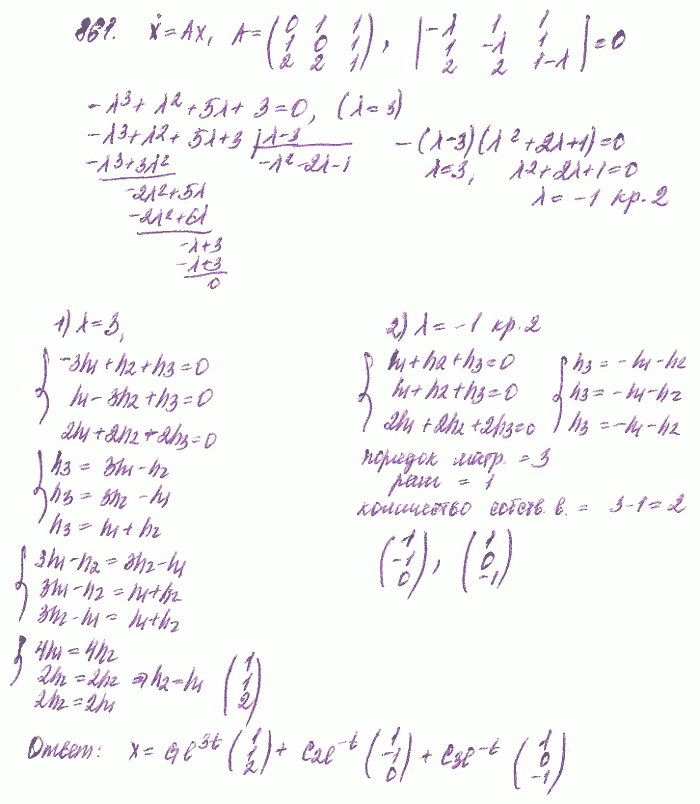 861. ẋ = Ax, A = (0 1 1; 1 0 1; 2 2 1), |-λ 1 1; 1 -λ 1; 2 2 1-λ| = 0
-λ³ + λ² + 5λ + 3 = 0, (λ = 3)
-λ³ + λ² + 5λ + 3 | λ - 3
-λ³ + 3λ²
-λ² - 2λ - 1
-2λ² + 5λ
-2λ² + 6λ
-λ + 3
-λ + 3
0
-(λ-3)(λ² + 2λ + 1) = 0
λ = 3, λ² + 2λ + 1 = 0
λ = -1 кр. 2
1) λ = 3,
-3h₁ + h₂ + h₃ = 0
h₁ - 3h₂ + h₃ = 0
2h₁ + 2h₂ + 2h₃ = 0
h₃ = 3h₁ - h₂
h₃ = 3h₂ - h₁
h₃ = h₁ + h₂
3h₁ - h₂ = 3h₂ - h₁
3h₁ - h₂ = h₁ + h₂
3h₂ - h₁ = h₁ + h₂
4h₁ = 4h₂
2h₁ = 2h₂ ⇒ h₂ = h₁ (1; 1; 2)
2h₂ = 2h₁
2) λ = -1 кр. 2
h₁ + h₂ + h₃ = 0 h₃ = -h₁ - h₂
h₁ + h₂ + h₃ = 0 h₃ = -h₁ - h₂
2h₁ + 2h₂ + 2h₃ = 0 h₃ = -h₁ - h₂
порядок матр. = 3
ранг = 1
количество собств. в. = 3 - 1 = 2
(1; -1; 0), (1; 0; -1)
Ответ: x = C₁e^{3t} (1; 1; 2) + C₂e^{-t} (1; -1; 0) + C₃e^{-t} (1; 0; -1)